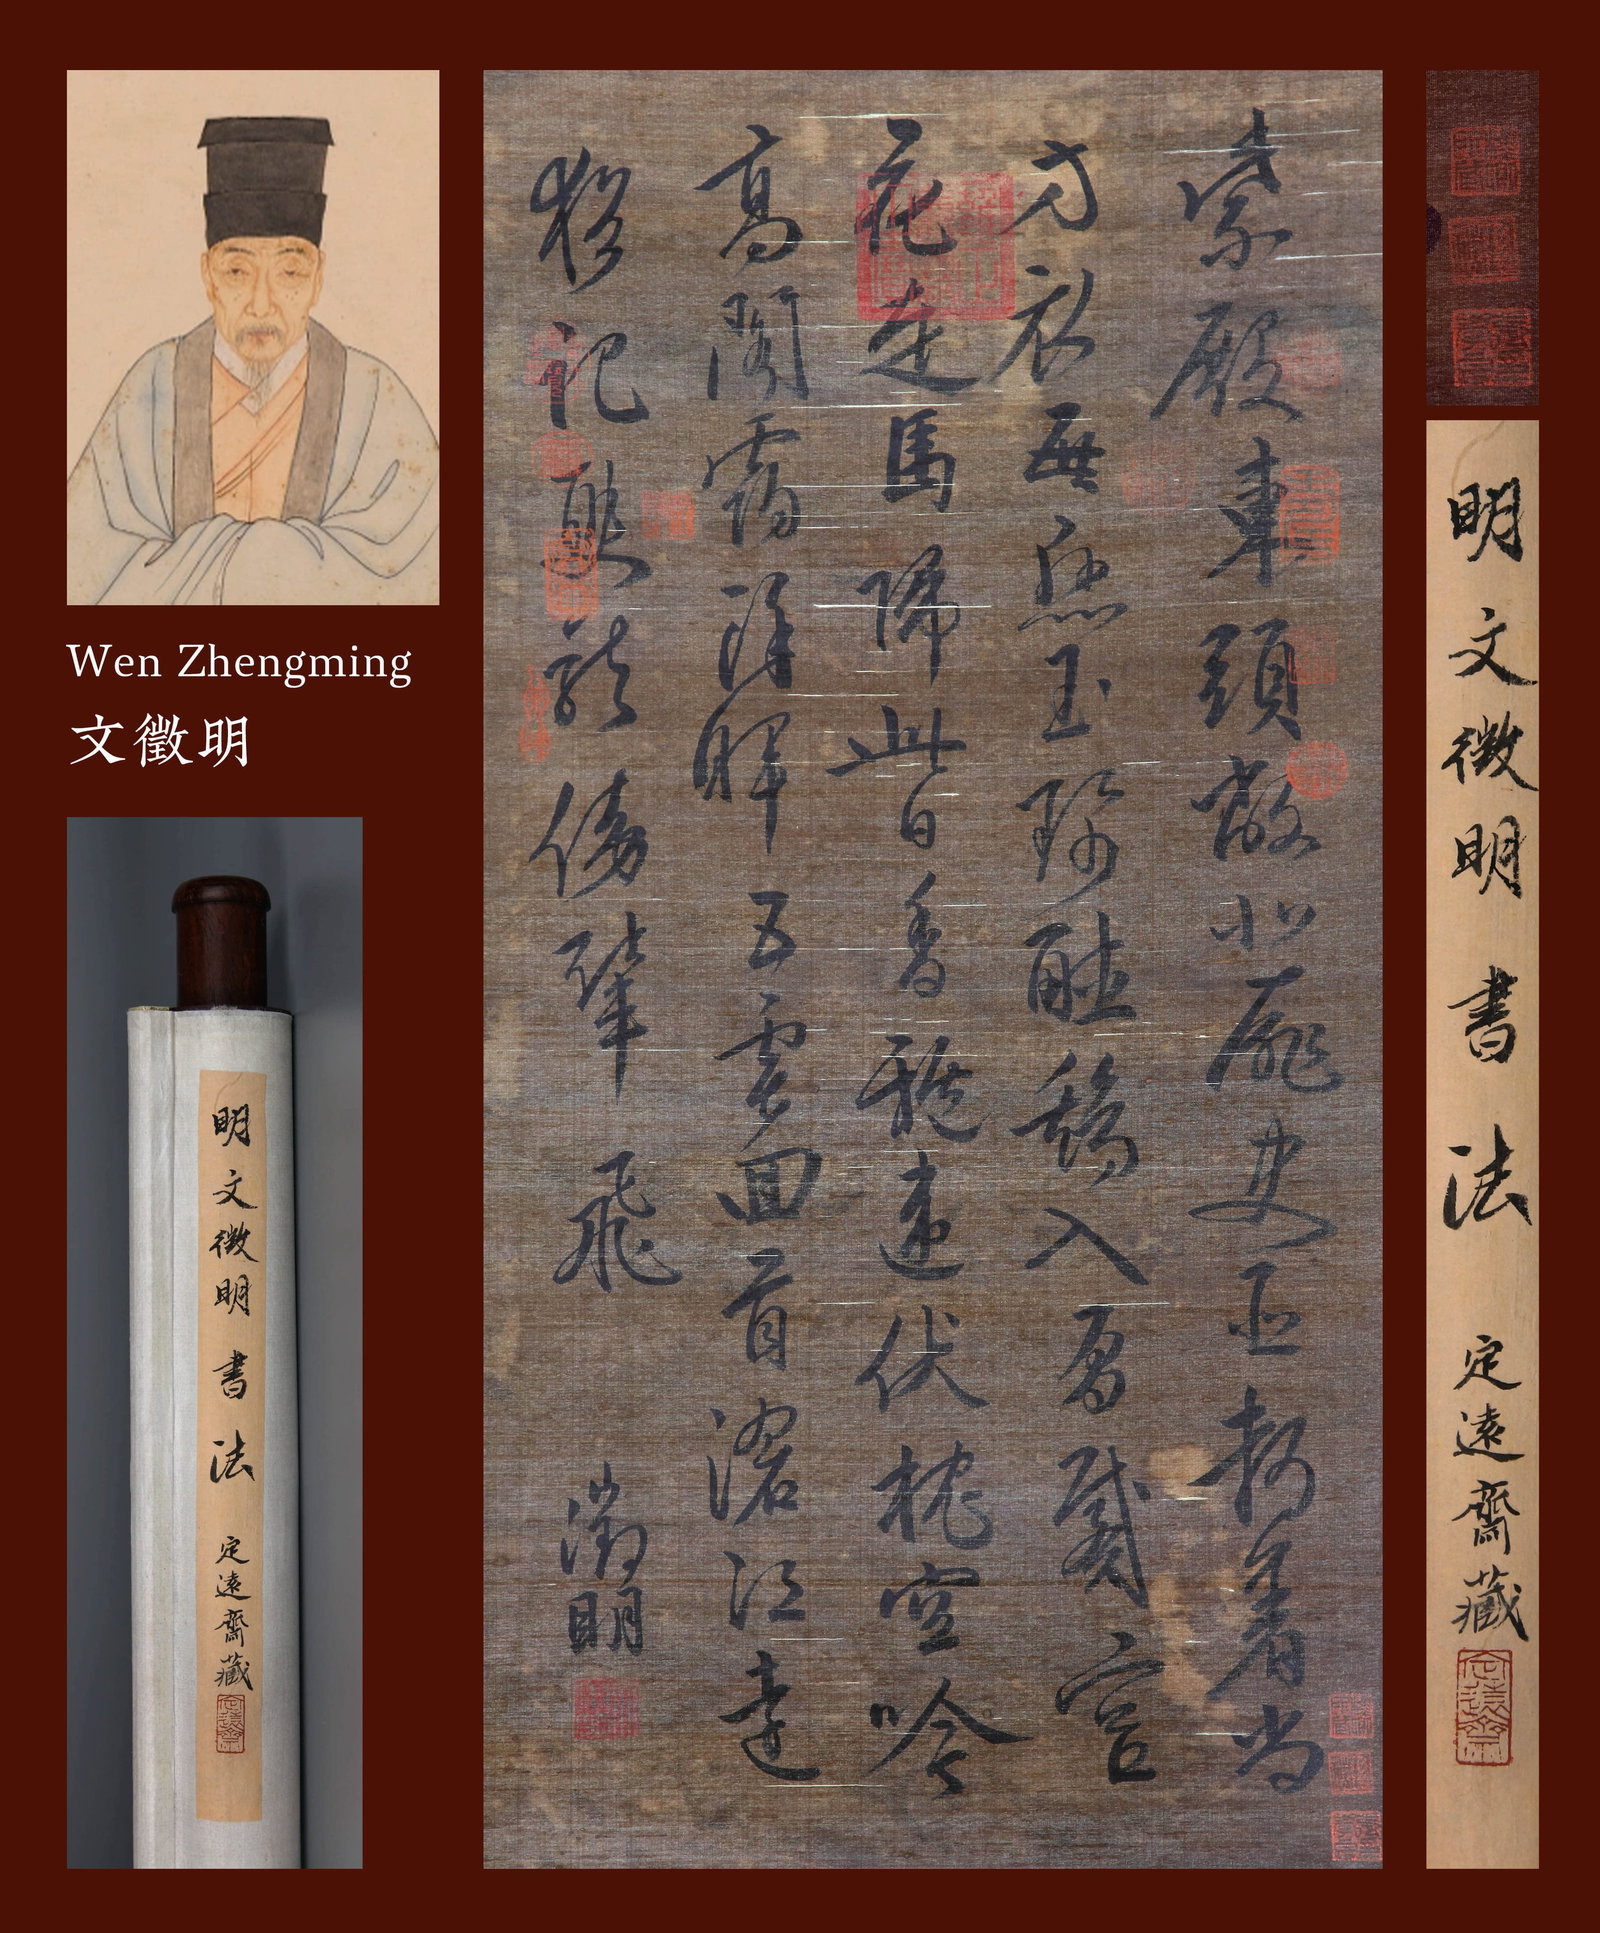 Wen Zhengming
文徵明
紫殿東頭敞北扉史臣著尚
方衣每懸玉珮聽鷄入曾戴宮
花走馬歸此日香違伏枕空吟
高閣靄餘暉五雲回首滄江遠
猶記聯傍輦飛
徵明
明文徵明書法 定遠齋藏
明文徵明書法 定遠齋藏